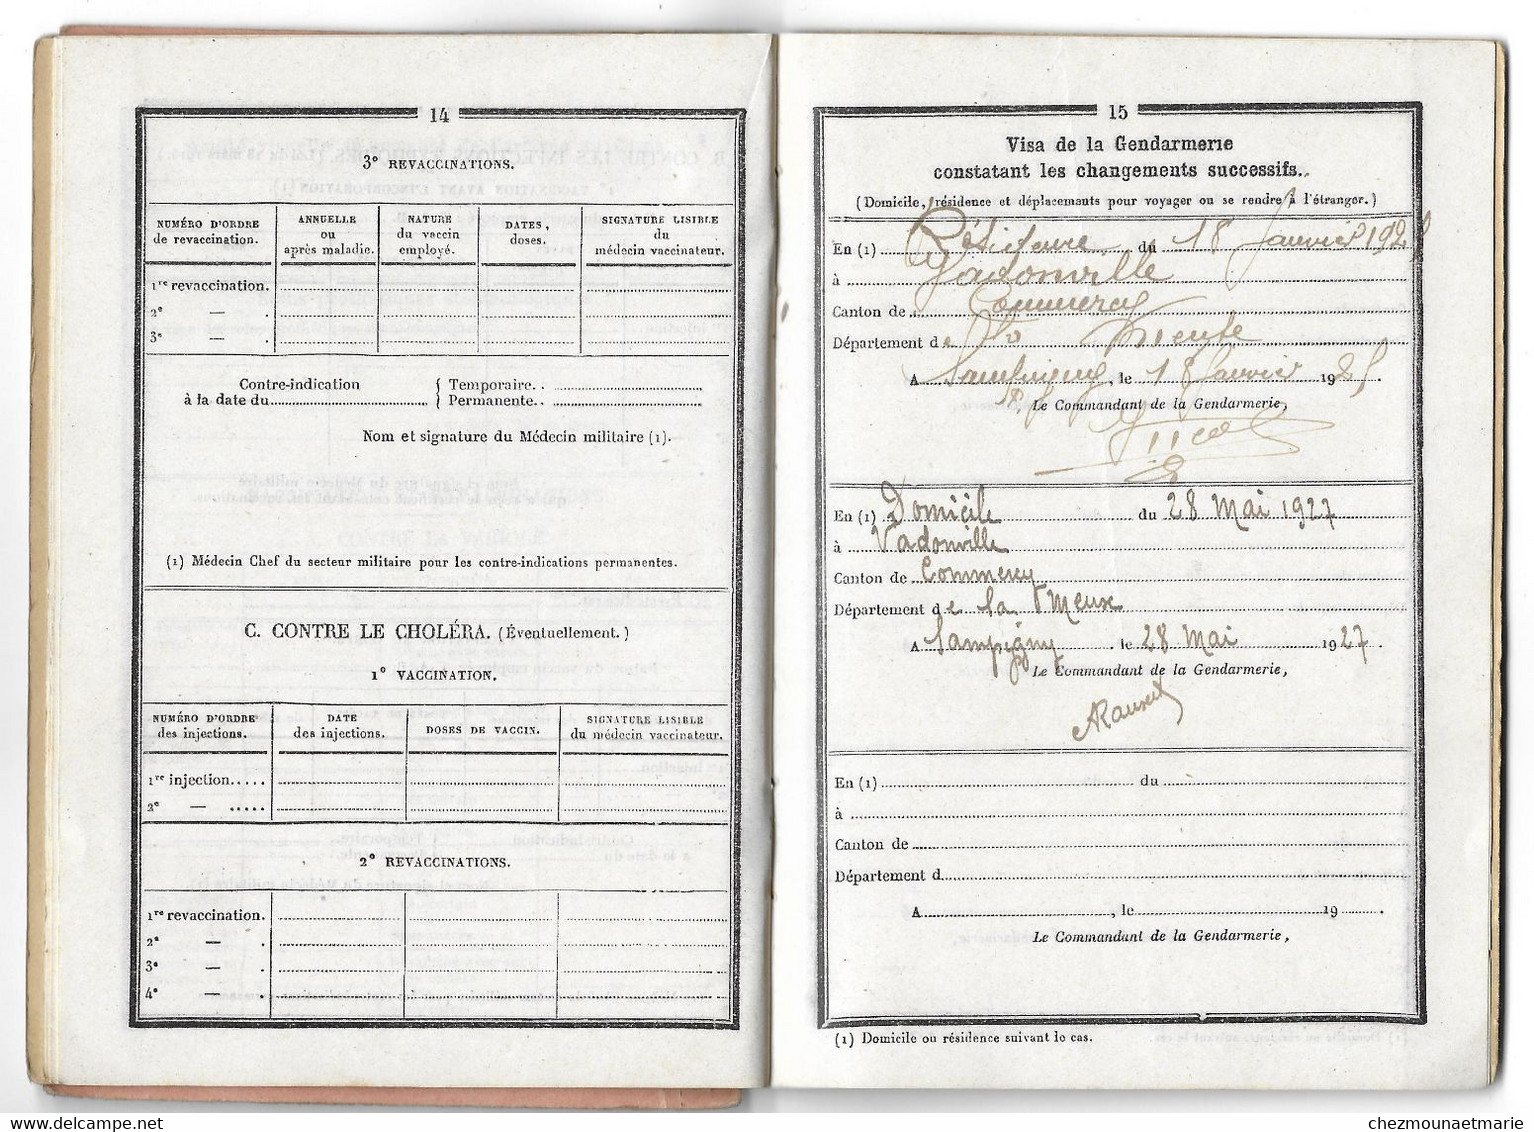 14
3° REVACCINATIONS.
NUMÉRO D'ORDRE de revaccination. ANNUELLE ou après maladie. NATURE du vaccin employé. DATES, doses. SIGNATURE LISIBLE du médecin vaccinateur.
1re revaccination.
2e — .
3e — .
Contre-indication à la date du
Temporaire. .
Permanente. .
Nom et signature du Médecin militaire (1).
(1) Médecin Chef du secteur militaire pour les contre-indications permanentes.
C. CONTRE LE CHOLÉRA. (Éventuellement.)
1° VACCINATION.
NUMÉRO D'ORDRE des injections. DATE des injections. DOSES DE VACCIN. SIGNATURE LISIBLE du médecin vaccinateur.
1re injection.....
2e — .....
2° REVACCINATIONS.
1re revaccination.
2e — .
3e — .
4e — .
15
Visa de la Gendarmerie
constatant les changements successifs.
(Domicile, résidence et déplacements pour voyager ou se rendre à l'étranger.)
En (1) Résidence du 18 Janvier 192
à Vadonville
Canton de Commercy
Département de la Meuse
A Sampigny, le 18 Janvier 1925.
Le Commandant de la Gendarmerie,
En (1) Domicile du 28 Mai 1927
à Vadonville
Canton de Commercy
Département de la Meuse
A Sampigny. le 28 Mai 1927.
Le Commandant de la Gendarmerie,
En (1) du
à
Canton de
Département d
A , le 19 .
Le Commandant de la Gendarmerie,
(1) Domicile ou résidence suivant le cas.
chezmounaetmarie